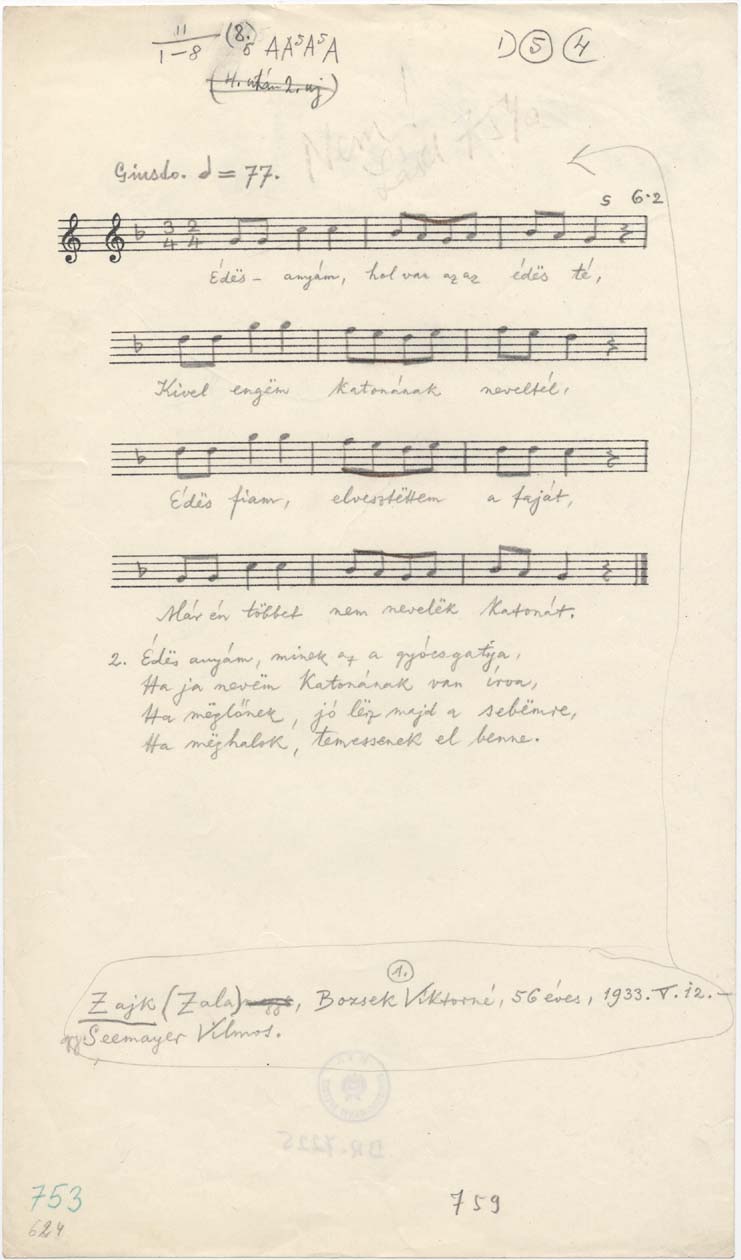 11 (8.) AA⁵A⁵A 1) 5 4
1–8 5
(4. után 2. uj)
Nem!
Giusto. = 77.
5 6·2
3 2
4 4
Édës- anyám, hol van az az édës té,
Kivel engëm katonának neveltél,
Édës fiam, elvesztëttem a faját,
Már én többet nem nevelëk katonát.
2. Édës anyám, minek az a gyócsgatýja,
Ha ja nevëm Katonának van írva,
Ha mëglőnek, jó lëz majd a sebëmre,
Ha mëghalok, temessenek el benne.
1.
Zajk (Zala), Bozsek Viktorné, 56 éves, 1933. V. 12. –
gy. Seemayer Vilmos.
753
624
759